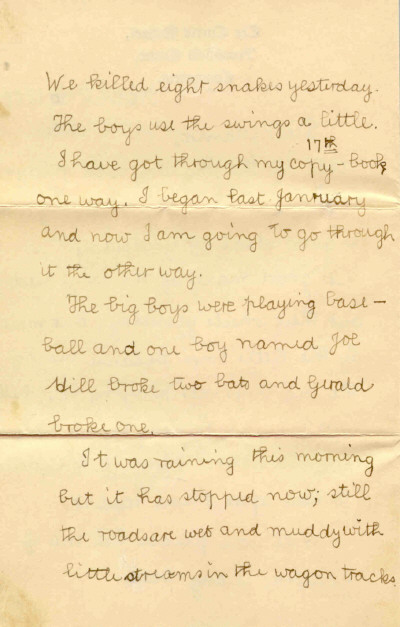 We killed eight snakes yesterday.
The boys use the swings a little.
17th
I have got through my copy-book
one way. I began last January
and now I am going to go through
it the other way.
The big boys were playing base-
ball and one boy named Joe
Hill broke two bats and Gerald
broke one.
It was raining this morning
but it has stopped now; still
the roads are wet and muddy with
little streams in the wagon tracks.